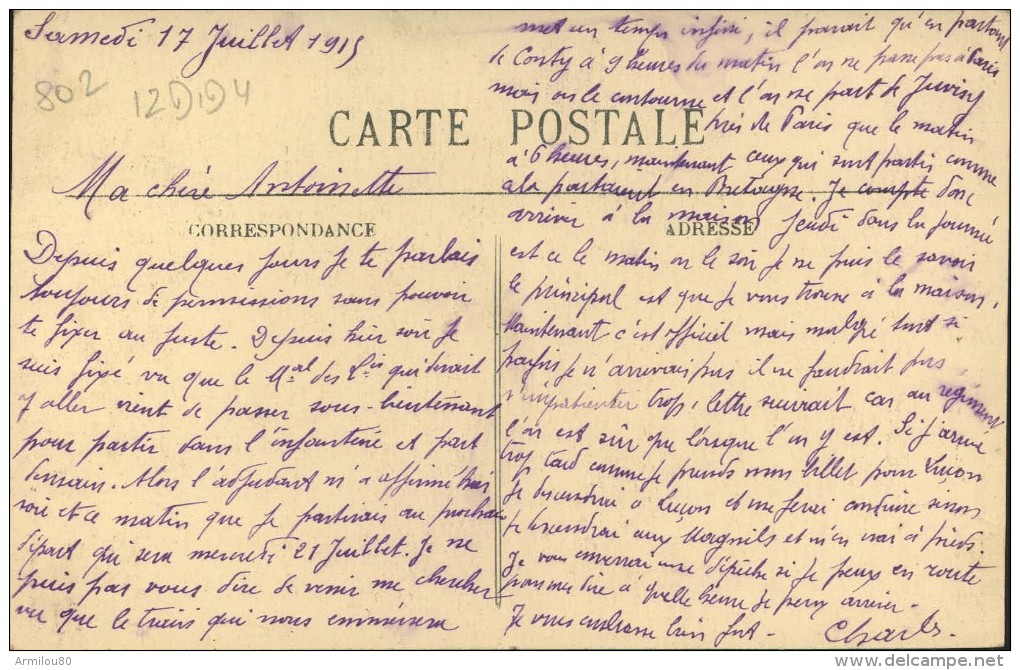 Samedi 17 Juillet 1915
802
12DD4
CARTE POSTALE
Ma chère Antoinette
CORRESPONDANCE
Depuis quelques jours je te parlais
toujours de permissions sans pouvoir
te fixer au juste. Depuis hier soir je
suis fixé vu que le Mal des Lis qui devait
y aller vient de passer sous-lieutenant
pour partir dans l'infanterie et part
demain. Alors l'adjudant m'a affirmé hier
soir et ce matin que je partirais au prochain
départ qui sera mercredi 21 Juillet. Je ne
puis pas vous dire de venir me chercher
vu que le train qui nous emmènera
met un temps infini, il parait qu'en partant
de Conty à 9 heures du matin l'on ne passe pas à Paris
mais on le contourne et l'on ne part de Juvisy
près de Paris que le matin
à 6 heures, maintenant ceux qui sont partis comme
cela partaient en Bretagne. Je compte donc
arriver à la maison Jeudi dans la journée
ADRESSE
est ce le matin ou le soir je ne puis le savoir
le principal est que je vous trouve à la maison.
Maintenant c'est officiel mais malgré tout si
parfois je n'arrivais pas il ne faudrait pas
s'impatienter trop, lettre suivrait car au régiment
l'on est sûr que lorsque l'on y est. Si j'arrive
trop tard comme je prends mon billet pour Luçon
je descendrai à Luçon et me ferai conduire sinon
je descendrai aux Magnils et m'en irai à pieds.
Je vous enverrai une dépêche si je peux en route
pour me dire à quelle heure je peux arriver.
Je vous embrasse bien fort - Charles.
Armilou80
delcampe.net